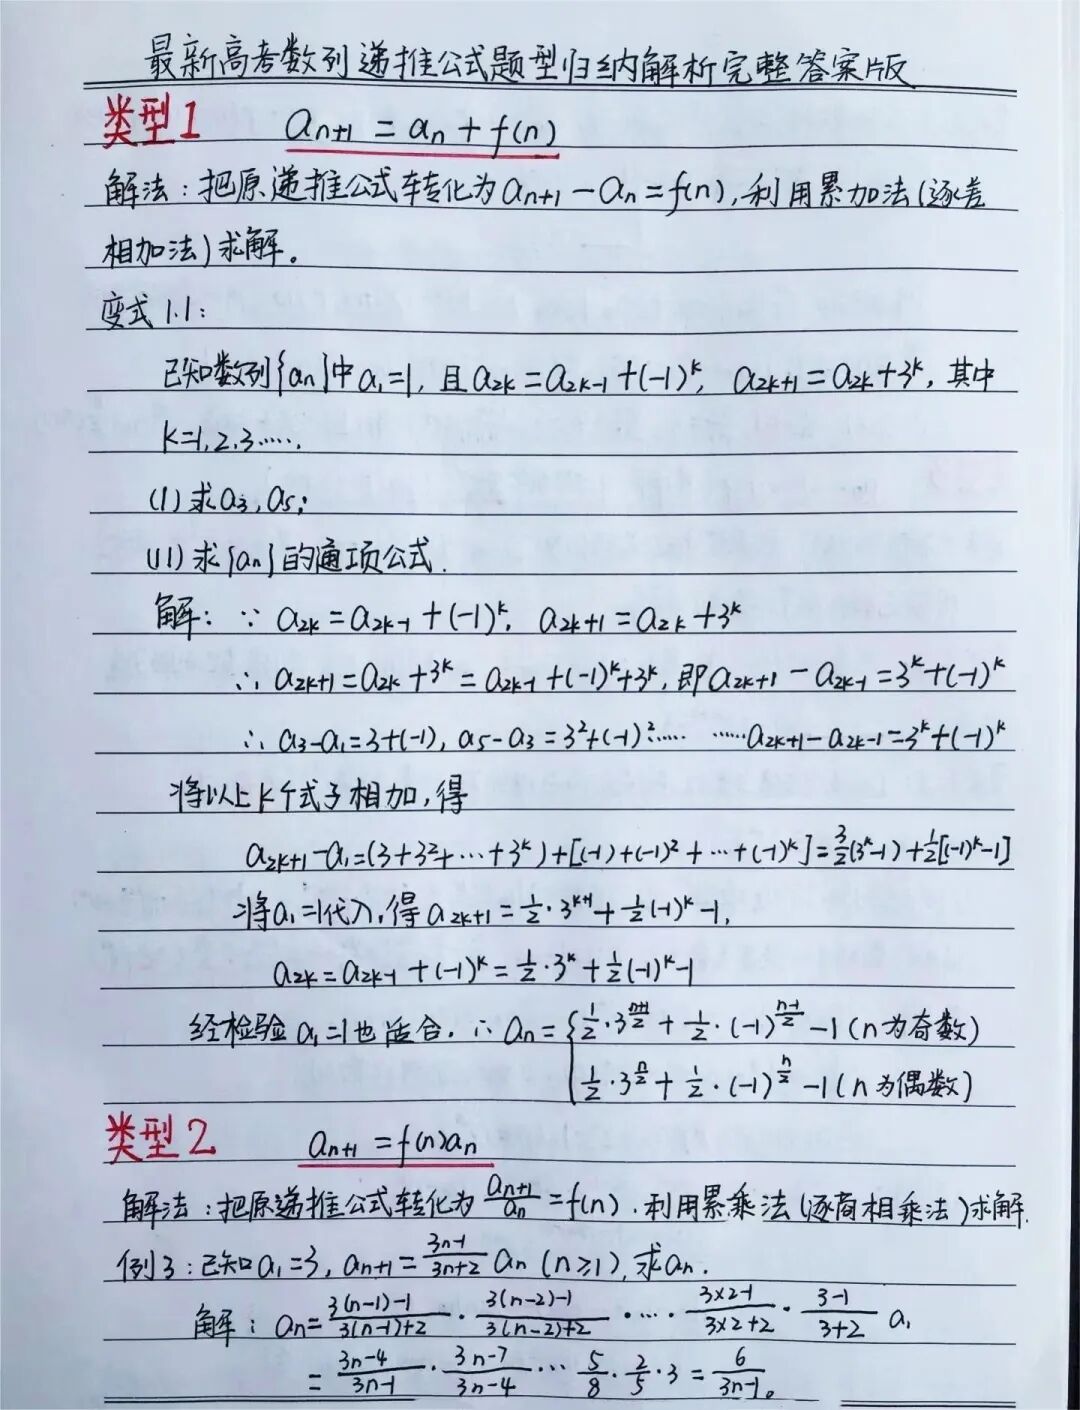 最新高考数列递推公式题型归纳解析完整答案版
类型1 aₙ₊₁ = aₙ + f(n)
解法：把原递推公式转化为aₙ₊₁ - aₙ = f(n), 利用累加法(逐差
相加法)求解。
变式1.1：
已知数列{aₙ}中a₁=1, 且a₂ₖ = a₂ₖ₋₁ + (-1)ᵏ, a₂ₖ₊₁ = a₂ₖ + 3ᵏ, 其中
k=1,2,3……
(I)求a₃, a₅;
(II)求{aₙ}的通项公式.
解：∵ a₂ₖ = a₂ₖ₋₁ + (-1)ᵏ, a₂ₖ₊₁ = a₂ₖ + 3ᵏ
∴ a₂ₖ₊₁ = a₂ₖ + 3ᵏ = a₂ₖ₋₁ + (-1)ᵏ + 3ᵏ, 即a₂ₖ₊₁ - a₂ₖ₋₁ = 3ᵏ + (-1)ᵏ
∴ a₃ - a₁ = 3 + (-1), a₅ - a₃ = 3² + (-1)²…… ……a₂ₖ₊₁ - a₂ₖ₋₁ = 3ᵏ + (-1)ᵏ
将以上k个式子相加, 得
a₂ₖ₊₁ - a₁ = (3 + 3² + … + 3ᵏ) + [(-1) + (-1)² + … + (-1)ᵏ] = 3/2(3ᵏ - 1) + 1/2[(-1)ᵏ - 1]
将a₁=1代入, 得a₂ₖ₊₁ = 1/2·3ᵏ⁺¹ + 1/2(-1)ᵏ - 1,
a₂ₖ = a₂ₖ₋₁ + (-1)ᵏ = 1/2·3ᵏ + 1/2(-1)ᵏ - 1
经检验a₁=1也适合. ∴ aₙ = { 1/2·3^((n+1)/2) + 1/2·(-1)^((n-1)/2) - 1 (n为奇数)
1/2·3^(n/2) + 1/2·(-1)^(n/2) - 1 (n为偶数)
类型2 aₙ₊₁ = f(n)aₙ
解法：把原递推公式转化为aₙ₊₁/aₙ = f(n). 利用累乘法(逐商相乘法)求解.
例3：已知a₁=3, aₙ₊₁ = (3n-1)/(3n+2) aₙ (n≥1), 求aₙ.
解：aₙ = (3(n-1)-1)/(3(n-1)+2) · (3(n-2)-1)/(3(n-2)+2) · … · (3×2-1)/(3×2+2) · (3-1)/(3+2) a₁
= (3n-4)/(3n-1) · (3n-7)/(3n-4) … 5/8 · 2/5 · 3 = 6/(3n-1)。